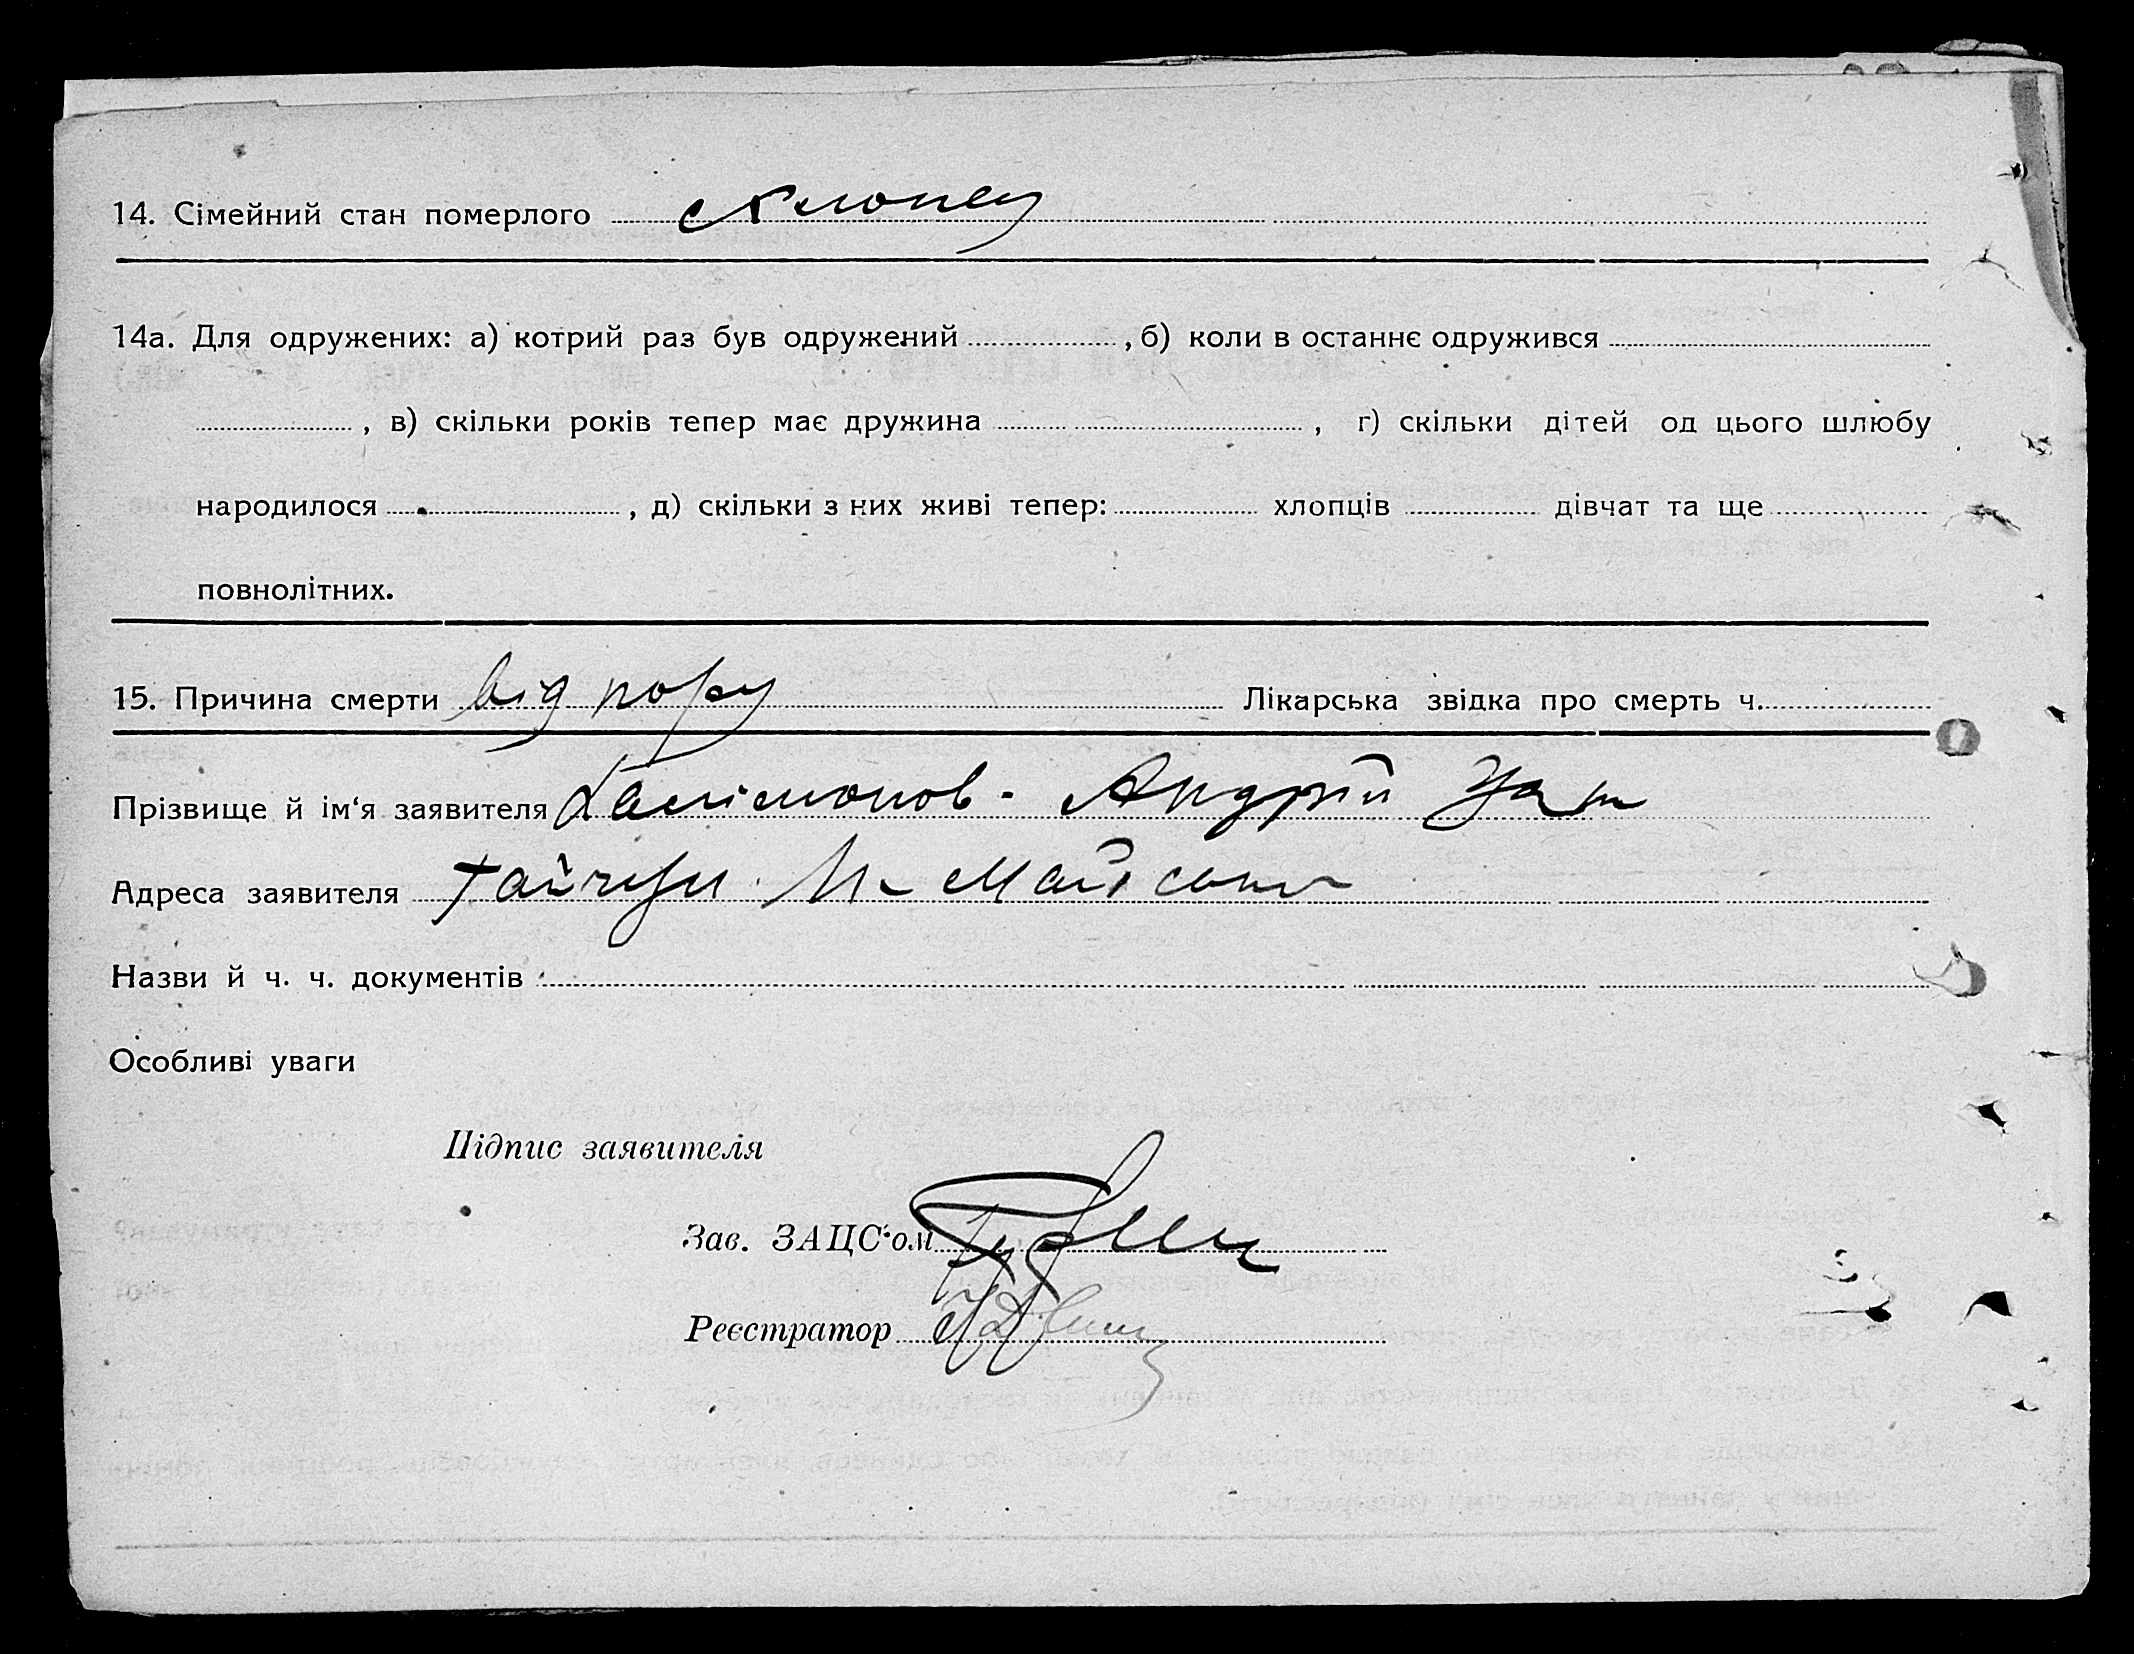 14. Сімейний стан померлого хлопец
14а. Для одружених: а) котрий раз був одружений , б) коли в останнє одружився
, в) скільки років тепер має дружина , г) скільки дітей од цього шлюбу
народилося , д) скільки з них живі тепер: хлопців дівчат та ще
повнолітних.
15. Причина смерти від кору Лікарська звідка про смерть ч.
Прізвище й ім‘я заявителя Андрій
Адреса заявителя Гайчур
Назви й ч. ч. документів
Особливі уваги
Підпис заявителя
Зав. ЗАЦС‘ом
Реєстратор